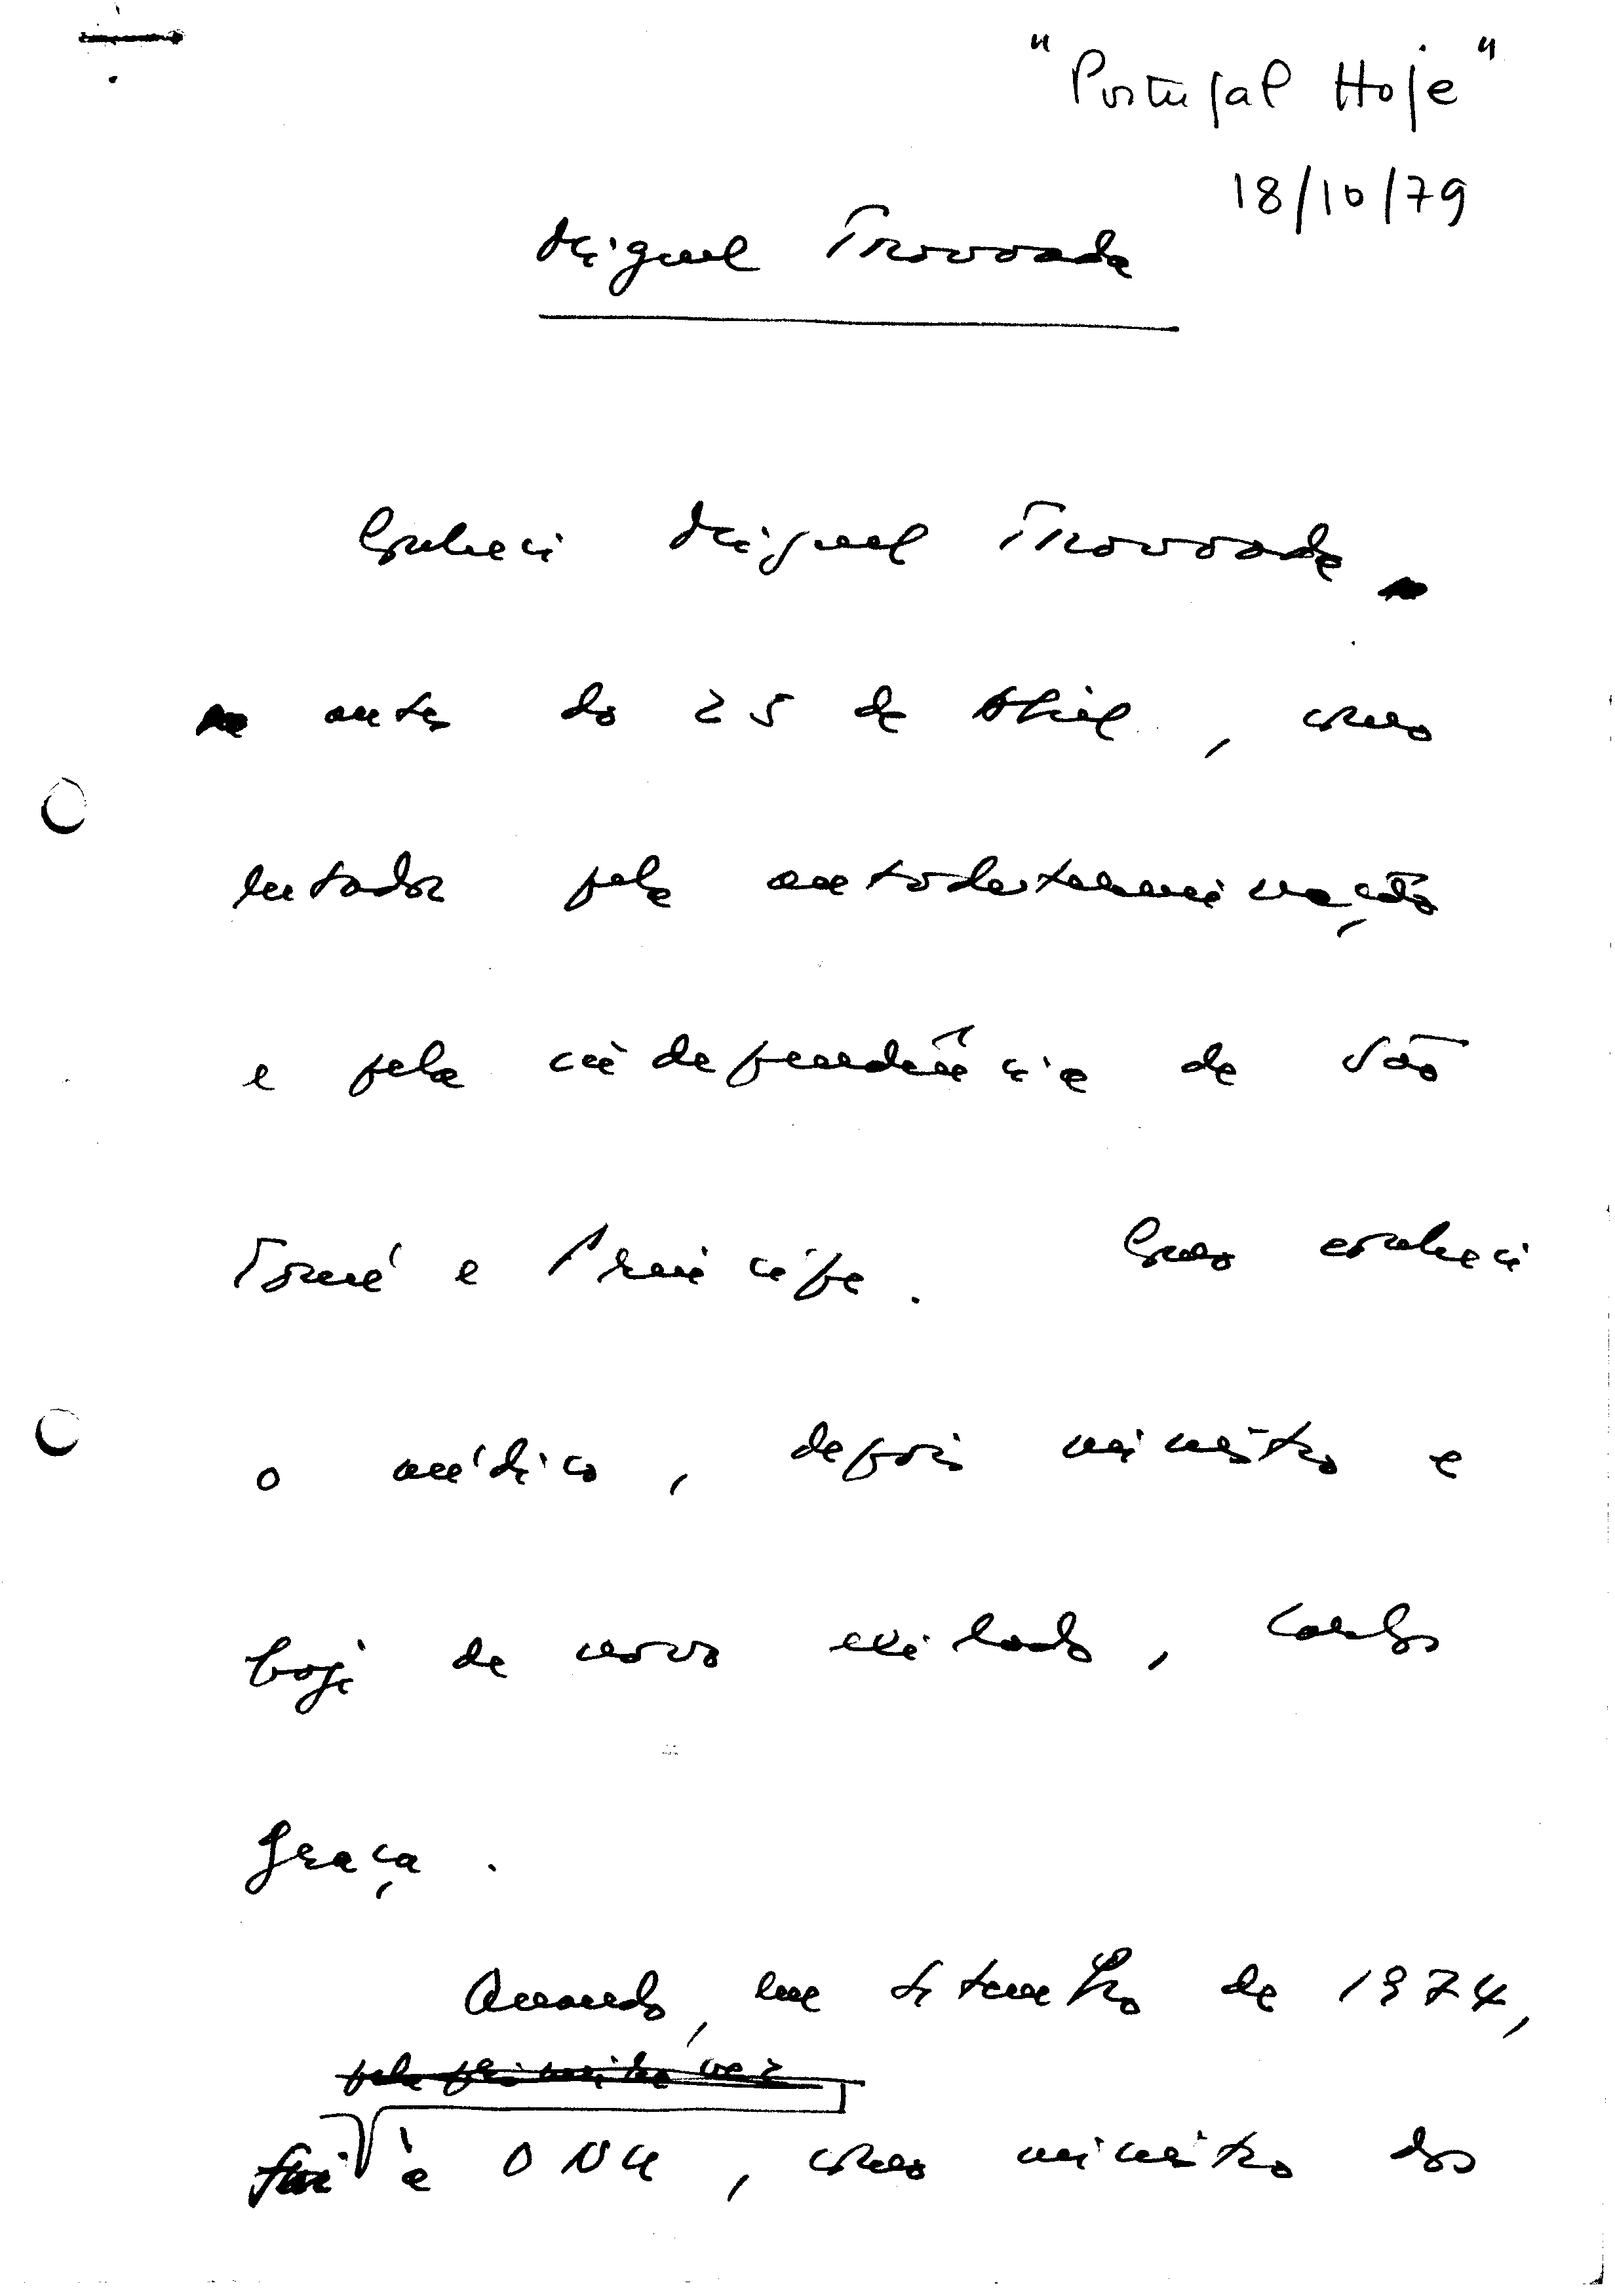 "Portugal Hoje"
18/10/79
Miguel Trovoada
Conheci Miguel Trovoada
antes do 25 de Abril, como
lutador pela autodeterminação
e pela independência de São
Tomé e Príncipe. Como conheci
o médico, depois ministro e
hoje de novo exilado, Carlos
Graça.
Quando, em Setembro de 1974,
pela primeira vez
fui à ONU, como ministro dos